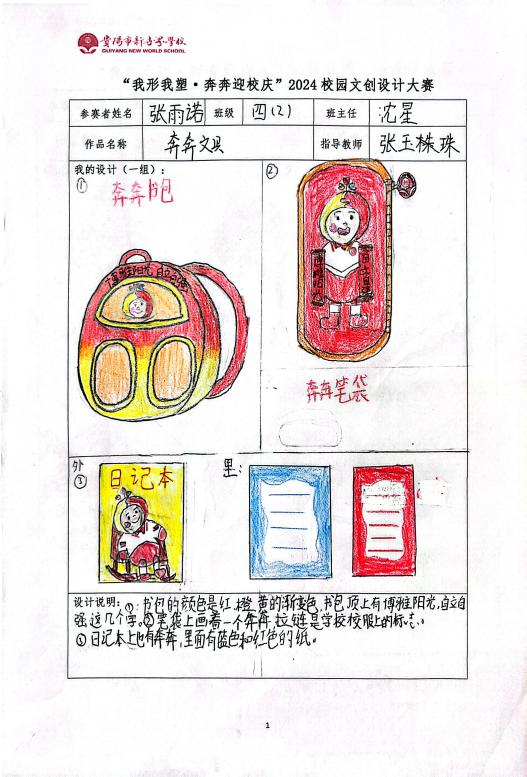 贵阳市新世界学校
GUIYANG NEW WORLD SCHOOL
“我形我塑·奔奔迎校庆”2024校园文创设计大赛
参赛者姓名 张雨诺 班级 四(2) 班主任 沈星
作品名称 奔奔文具 指导教师 张玉株珠
我的设计（一组）：
① 奔奔书包
博雅阳光 自立自强
②
博雅阳光 自立自强
奔奔笔袋
外 ③
日记本
里：
设计说明：①:书包的颜色是红、橙、黄的渐变色,书包顶上有博雅阳光,自立自
强这几个字。②笔袋上画着一个奔奔,拉链是学校校服上的标志。
③日记本上也有奔奔,里面有蓝色和红色的纸。
1